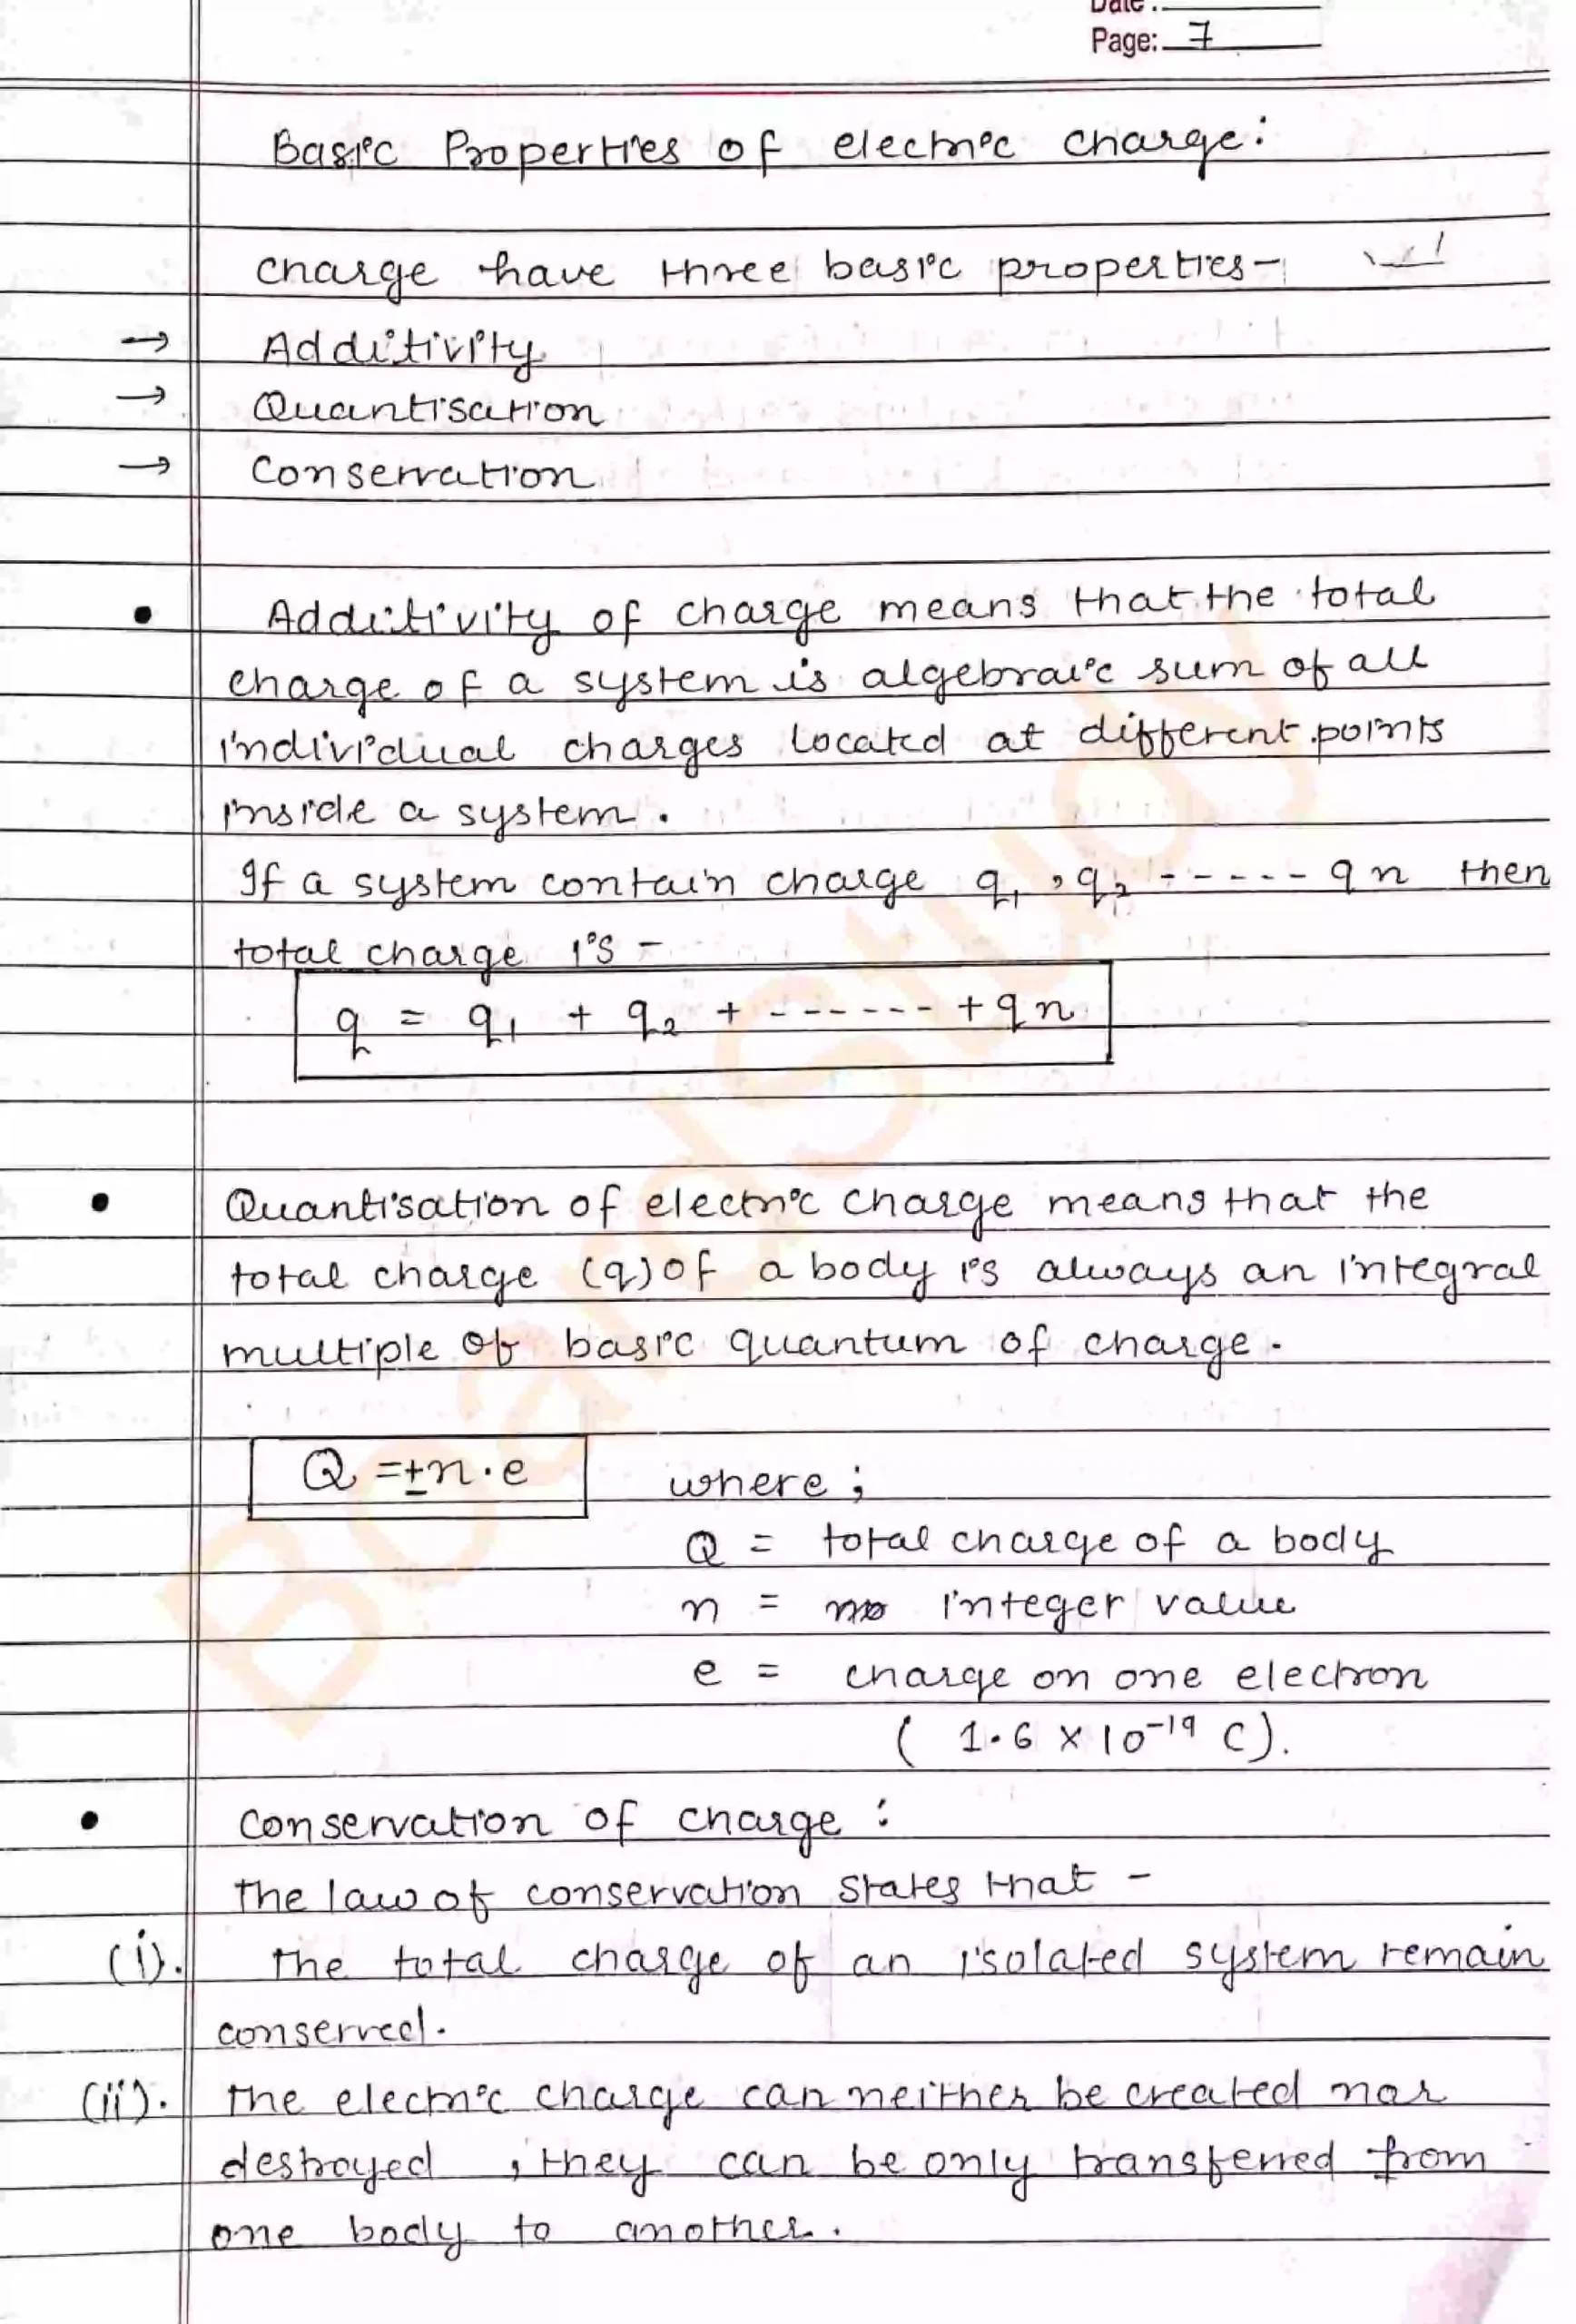 Date :
Page: 7
Basic Properties of electric charge:
charge have three basic properties-
→ Additivity
→ Quantisation
→ Conservation
• Additivity of charge means that the total
charge of a system is algebraic sum of all
individual charges located at different points
inside a system.
If a system contain charge q₁, q₂ ----- qn then
total charge is -
q = q₁ + q₂ + ------ + qn
• Quantisation of electric charge means that the
total charge (q) of a body is always an integral
multiple of basic quantum of charge.
Q = ±n.e where ;
Q = total charge of a body
n = integer value
e = charge on one electron
( 1.6 × 10⁻¹⁹ C).
• Conservation of charge :
The law of conservation states that -
(i). The total charge of an isolated system remain
conserved.
(ii). The electric charge can neither be created nor
destroyed , they can be only transferred from
one body to another.
BoardStudy